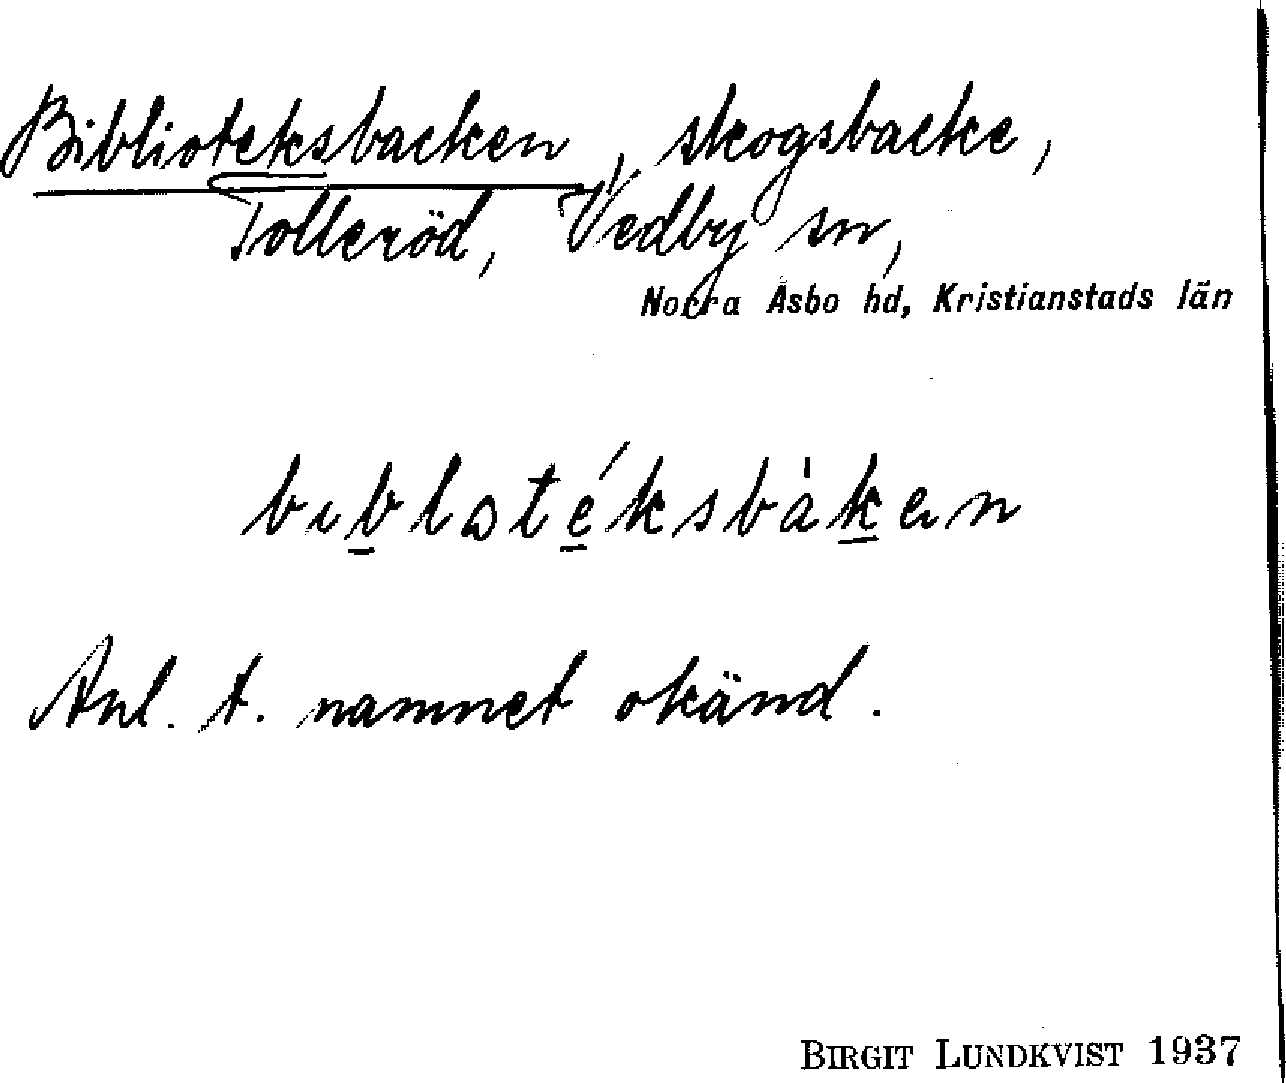 Biblioteksbacken, skogsbacke,
Tolleröd, Vedby sn,
Norra Åsbo hd, Kristianstads län
bıblɷtéksbàkɐn
Anl. t. namnet okänd.
BIRGIT LUNDKVIST 1937